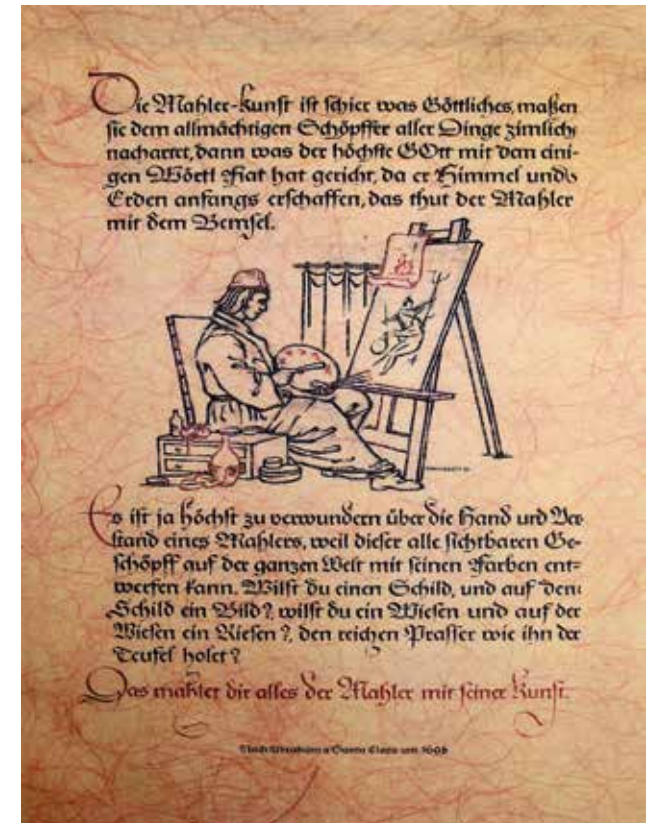 Die Mahler-Kunst ist schier was Göttliches, maßen
sie dem allmächtigen Schöpffer aller Dinge zimlich
nachartet, dann was der höchste GOtt mit dem eini-
gen Wörtl Fiat hat gericht, da er Himmel und
Erden anfangs erschaffen, das thut der Mahler
mit dem Bemsel.
Es ist ja höchst zu verwundern über die Hand und Ver-
stand eines Mahlers, weil dieser alle sichtbaren Ge-
schöpff auf der ganzen Welt mit seinen Farben ent-
werfen kann. Wilst du einen Schild, und auf den
Schild ein Bild? wilst du ein Wiesen und auf der
Wiesen ein Riesen?, den reichen Prasser wie ihn der
Teufel holet?
Das mahlet dir alles der Mahler mit seiner Kunst.
Nach Abraham a Santa Clara um